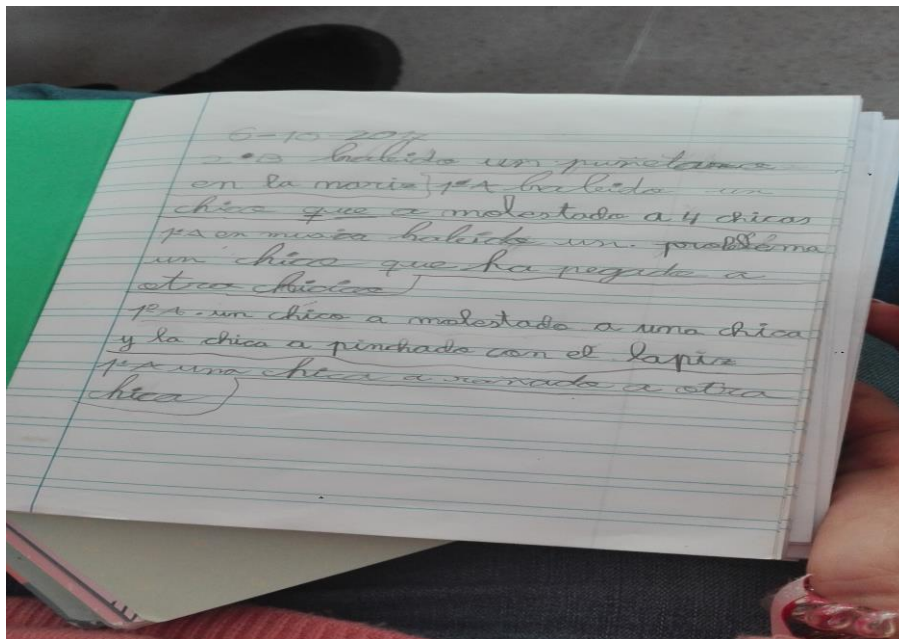 6-10-2017
2ºB habido un puñetazo
en la nariz) 1ºA habido un
chico que a molestado a 4 chicas
1ºA en musica habido un problema
un chico que ha pegado a
otro chico)
1ºA un chico a molestado a una chica
y la chica a pinchado con el lapiz
1ºA una chica a a otra
chica)